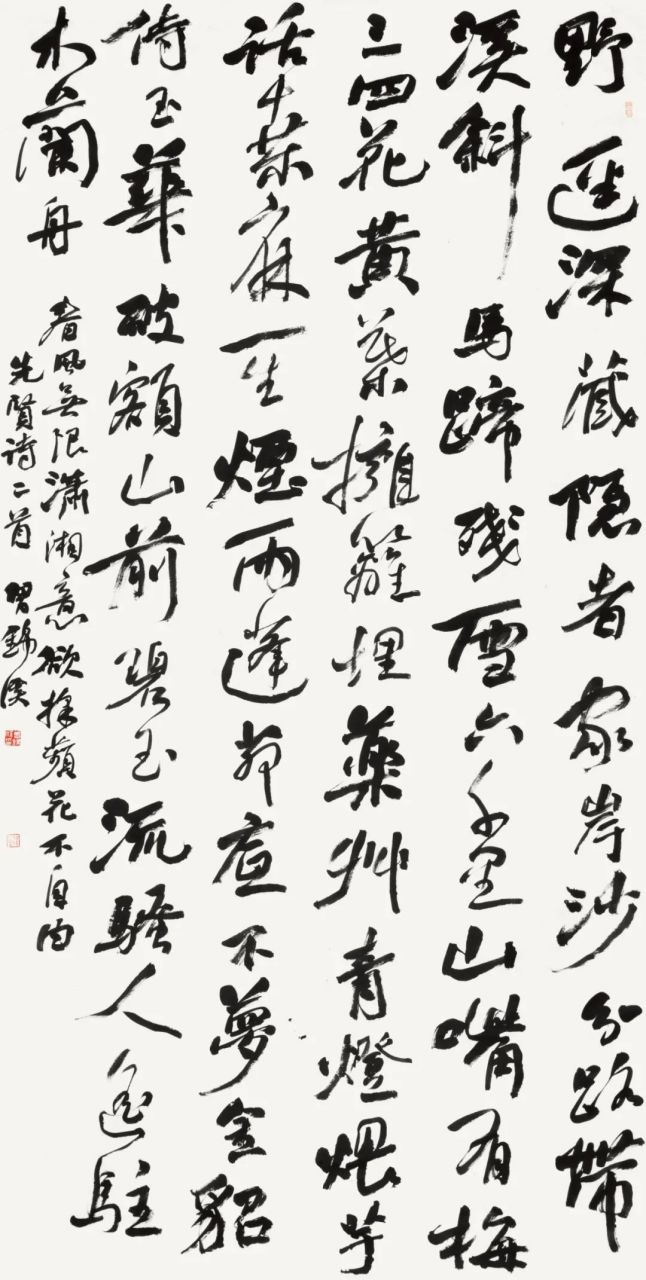 野逕深藏隐者家岸沙分路帶
溪斜馬蹄残雪六七里山嘴有梅
三四花黄葉擁籬埋藥艸青燈煨芋
話桑麻一生煙雨蓬茅底不夢金貂
侍玉華破額山前碧玉流騷人遙駐
木蘭舟
春風無限瀟湘意欲採蘋花不自由
先賢诗二首